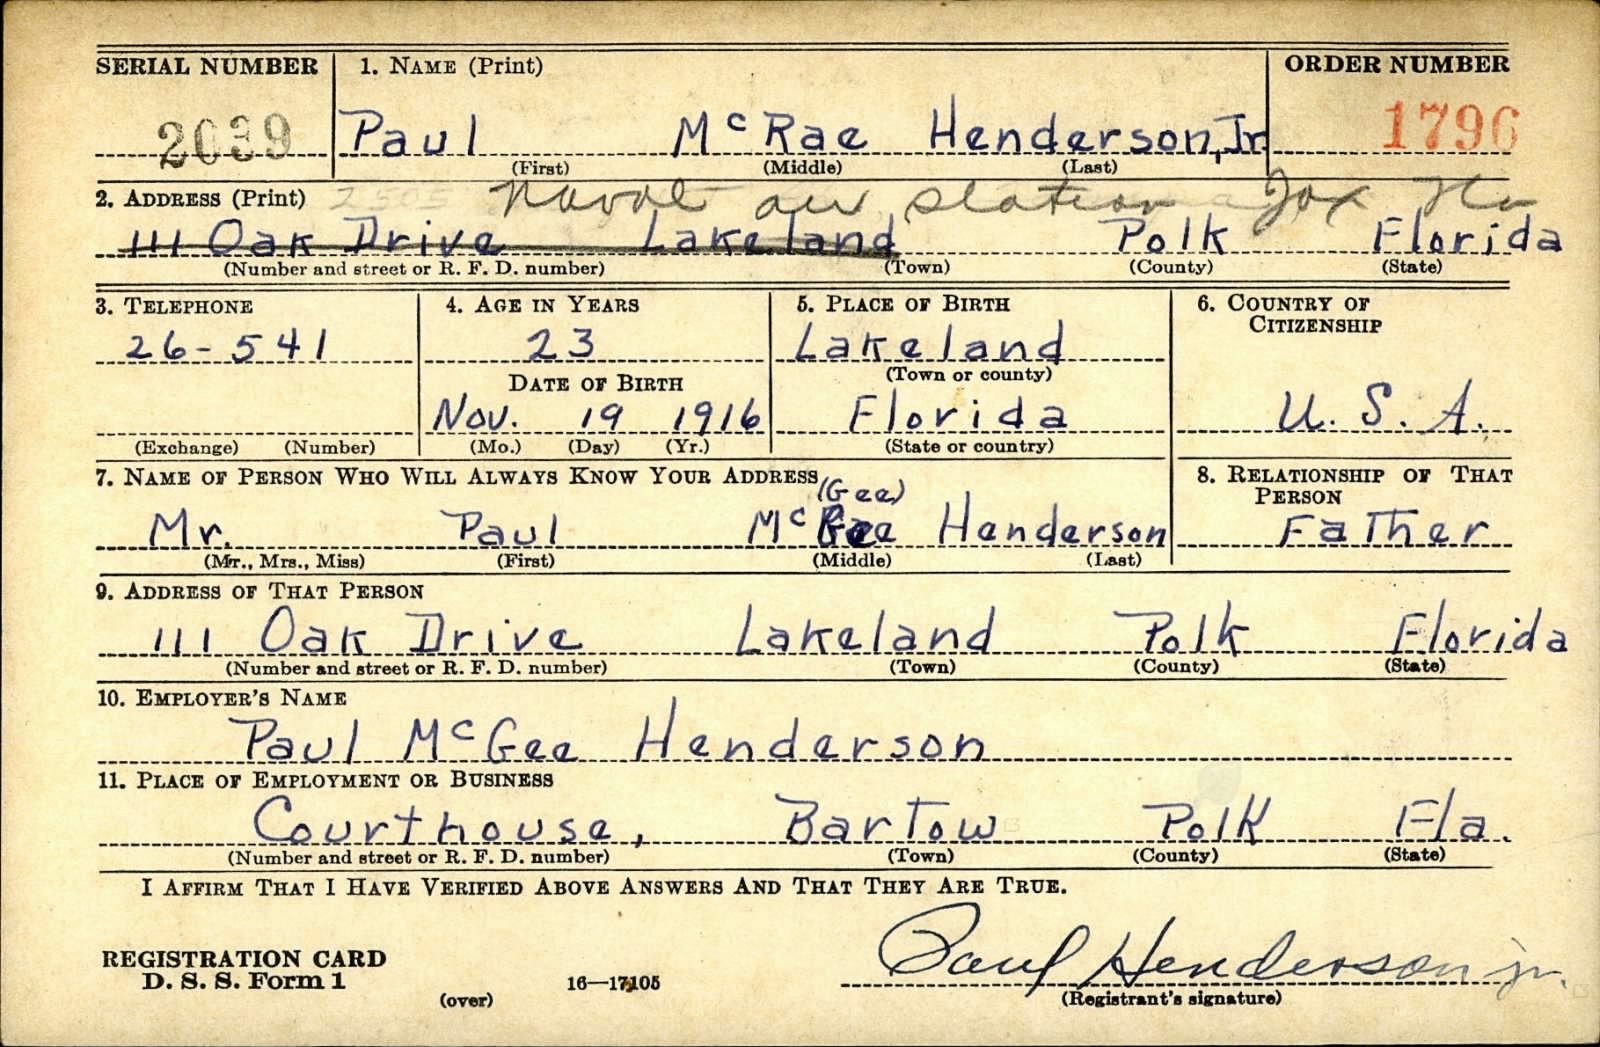 SERIAL NUMBER 1. NAME (Print) ORDER NUMBER
2039 Paul McRae Henderson, Jr. 1796
(First) (Middle) (Last)
2. ADDRESS (Print) Naval air station Jax Fla
111 Oak Drive Lakeland Polk Florida
(Number and street or R. F. D. number) (Town) (County) (State)
3. TELEPHONE 4. AGE IN YEARS 5. PLACE OF BIRTH 6. COUNTRY OF
CITIZENSHIP
26-541 23 Lakeland
(Town or county)
DATE OF BIRTH
Nov. 19 1916 Florida U. S. A.
(Exchange) (Number) (Mo.) (Day) (Yr.) (State or country)
7. NAME OF PERSON WHO WILL ALWAYS KNOW YOUR ADDRESS 8. RELATIONSHIP OF THAT
PERSON
(Gee)
Mr. Paul Mc Henderson Father
(Mr., Mrs., Miss) (First) (Middle) (Last)
9. ADDRESS OF THAT PERSON
111 Oak Drive Lakeland Polk Florida
(Number and street or R. F. D. number) (Town) (County) (State)
10. EMPLOYER'S NAME
Paul McGee Henderson
11. PLACE OF EMPLOYMENT OR BUSINESS
Courthouse, Bartow Polk Fla.
(Number and street or R. F. D. number) (Town) (County) (State)
I AFFIRM THAT I HAVE VERIFIED ABOVE ANSWERS AND THAT THEY ARE TRUE.
Paul Henderson jr.
REGISTRATION CARD
D. S. S. Form 1 16—17105
(over) (Registrant's signature)